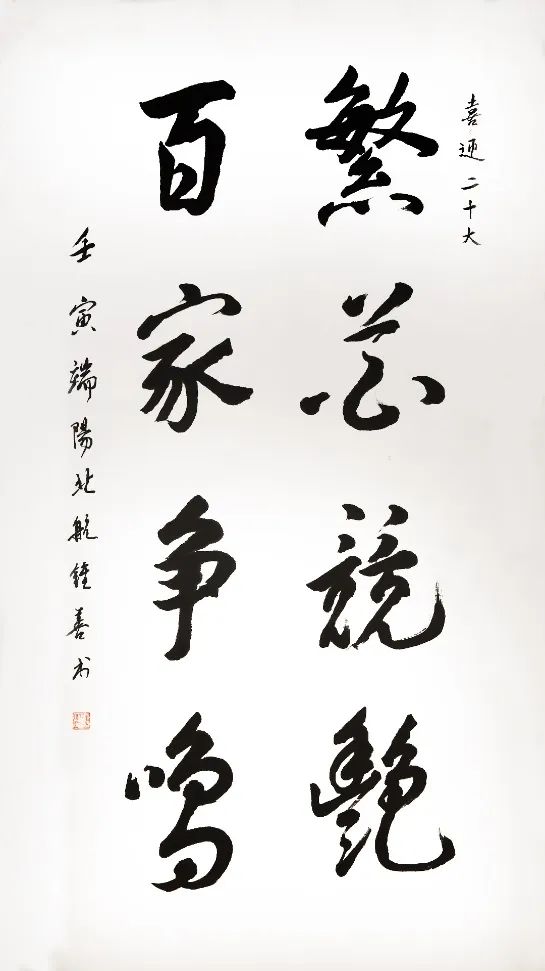 喜迎二十大
繁花競艷
百家争鳴
壬寅端陽北航鍾善书